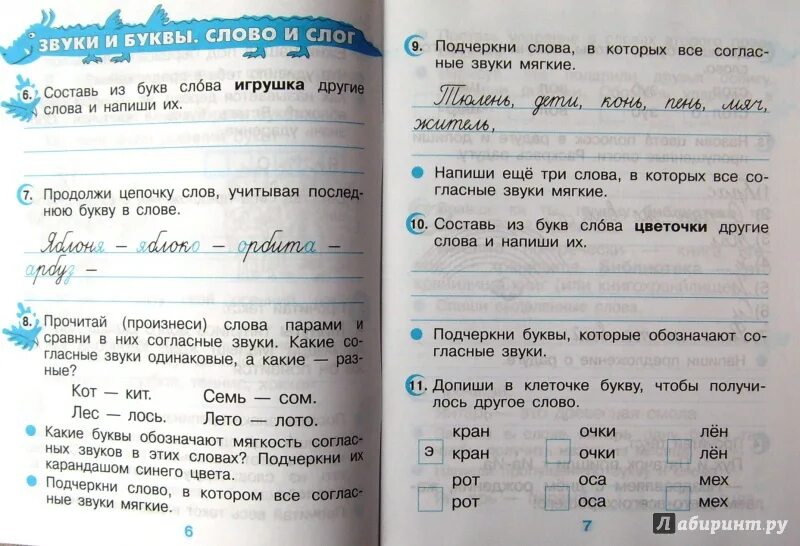 ЗВУКИ И БУКВЫ. СЛОВО И СЛОГ
6. Составь из букв сло́ва игрушка другие
слова и напиши их.
7. Продолжи цепочку слов, учитывая послед-
нюю букву в слове.
Яблоня – яблоко – орбита –
арбуз –
8. Прочитай (произнеси) слова парами и
сравни в них согласные звуки. Какие со-
гласные звуки одинаковые, а какие — раз-
ные?
Кот – кит. Семь – сом.
Лес – лось. Лето – лото.
Какие буквы обозначают мягкость соглас-
ных звуков в этих словах? Подчеркни их
карандашом синего цвета.
Подчеркни слово, в котором все соглас-
ные звуки мягкие.
6
9. Подчеркни слова, в которых все соглас-
ные звуки мягкие.
Тюлень, дети, конь, пень, мяч,
житель,
Напиши ещё три слова, в которых все со-
гласные звуки мягкие.
10. Составь из букв сло́ва цветочки другие
слова и напиши их.
Подчеркни буквы, которые обозначают со-
гласные звуки.
11. Допиши в клеточке букву, чтобы получи-
лось другое слово.
кран очки лён
э кран очки лён
рот оса мех
рот оса мех
7
Лабиринт.ру